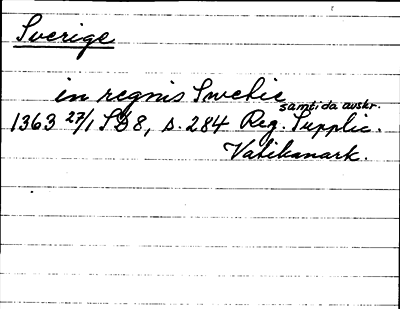 Sverige
in regnis Swecie
samtida avskr.
1363 27/1 SD8, s. 284 Reg. Supplic.
Vatikanark.